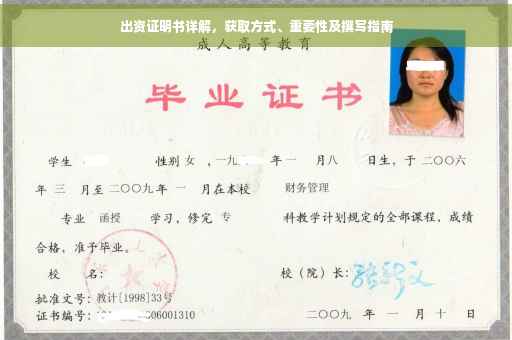 出资证明书详解，获取方式、重要性及撰写指南
成人高等教育
毕业证书
学生 性别 女 ，一九 年 一 月 八 日生，于 二〇〇六
年 三 月至 二〇〇九 年 一 月在本校 财务管理
专业 函授 学习，修完 专 科教学计划规定的全部课程，成绩
合格，准予毕业。
校 名： 校（院）长：
批准文号：教计[1998]33号
证书编号： 06001310 二〇〇九 年 一 月 十 日